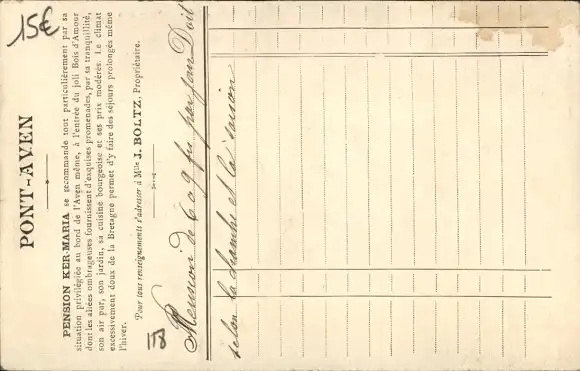 15€
PONT-AVEN
PENSION KER-MARIA se recommande tout particulièrement par sa
situation privilégiée au bord de l'Aven même, à l'entrée du joli Bois d'Amour
dont les allées ombrageuses fournissent d'exquises promenades, par sa tranquillité,
son air pur, son jardin, sa cuisine bourgeoise et ses prix modérés. Le climat
excessivement doux de la Bretagne permet d'y faire des séjours prolongés même
l'hiver.
Pour tous renseignements s'adresser à Mlle J. BOLTZ, Propriétaire.
Pension de 6 a 9 frs par jour
selon la chambre et la saison